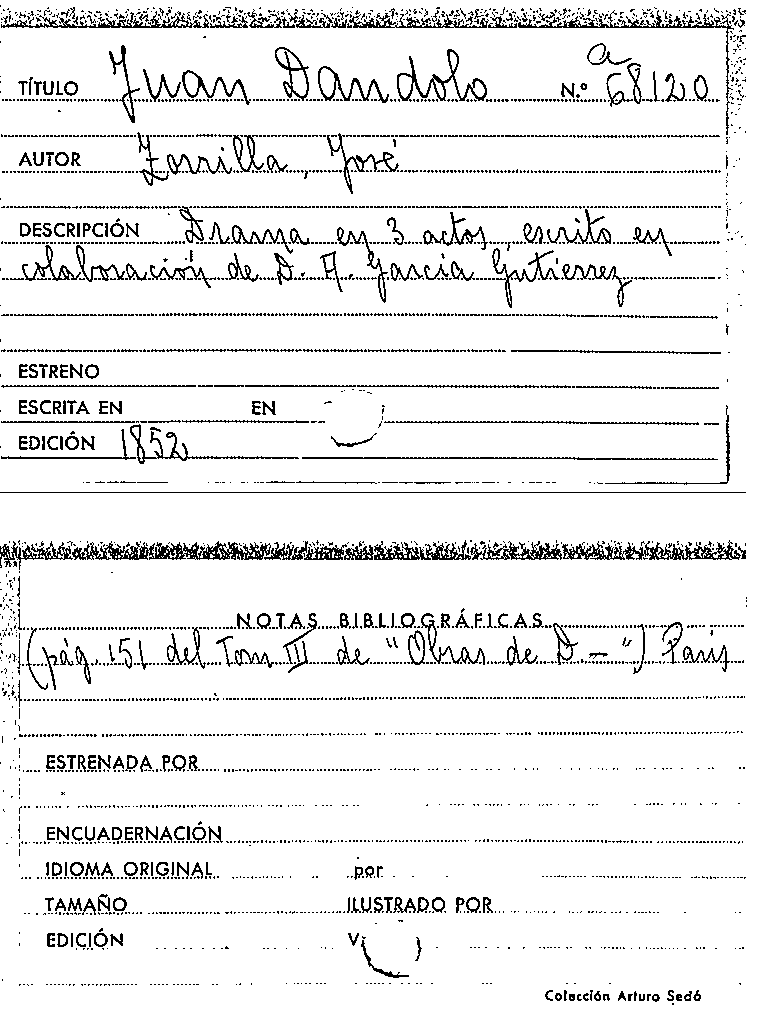 TÍTULO Juan Dandolo N.º a 68120
AUTOR Zorrilla, José
DESCRIPCIÓN Drama en 3 actos, escrito en
colaboración de D. A. García Gutierrez
ESTRENO
ESCRITA EN EN
EDICIÓN 1852
NOTAS BIBLIOGRÁFICAS
(pág. 151 del Tom III de "Obras de D. — ") Paris
ESTRENADA POR
ENCUADERNACIÓN
IDIOMA ORIGINAL por
TAMAÑO ILUSTRADO POR
EDICIÓN V.
Colección Arturo Sedó